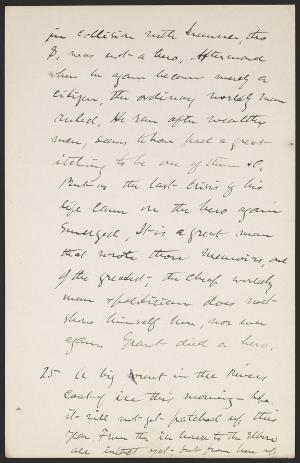 in collision with Sumner, tho
G. was not a hero, Afterward
when he again became merely a
citizen, the ordinary worldly man
ruled, He ran after wealthy
men, seems to have had a great
itching to be one of them &c.
But as the last crisis of his
life came on the hero again
emerged, It is a great man
that wrote those Memoirs, one
of the greatest, the cheap worldly
man & politician does not
show himself here, nor ever
again, Grant died a hero.
25 A big rent in the Rivers
coat of ice this morning
it will not get patched up this
year From the ice house to the Elbow
all intact yet, but from here